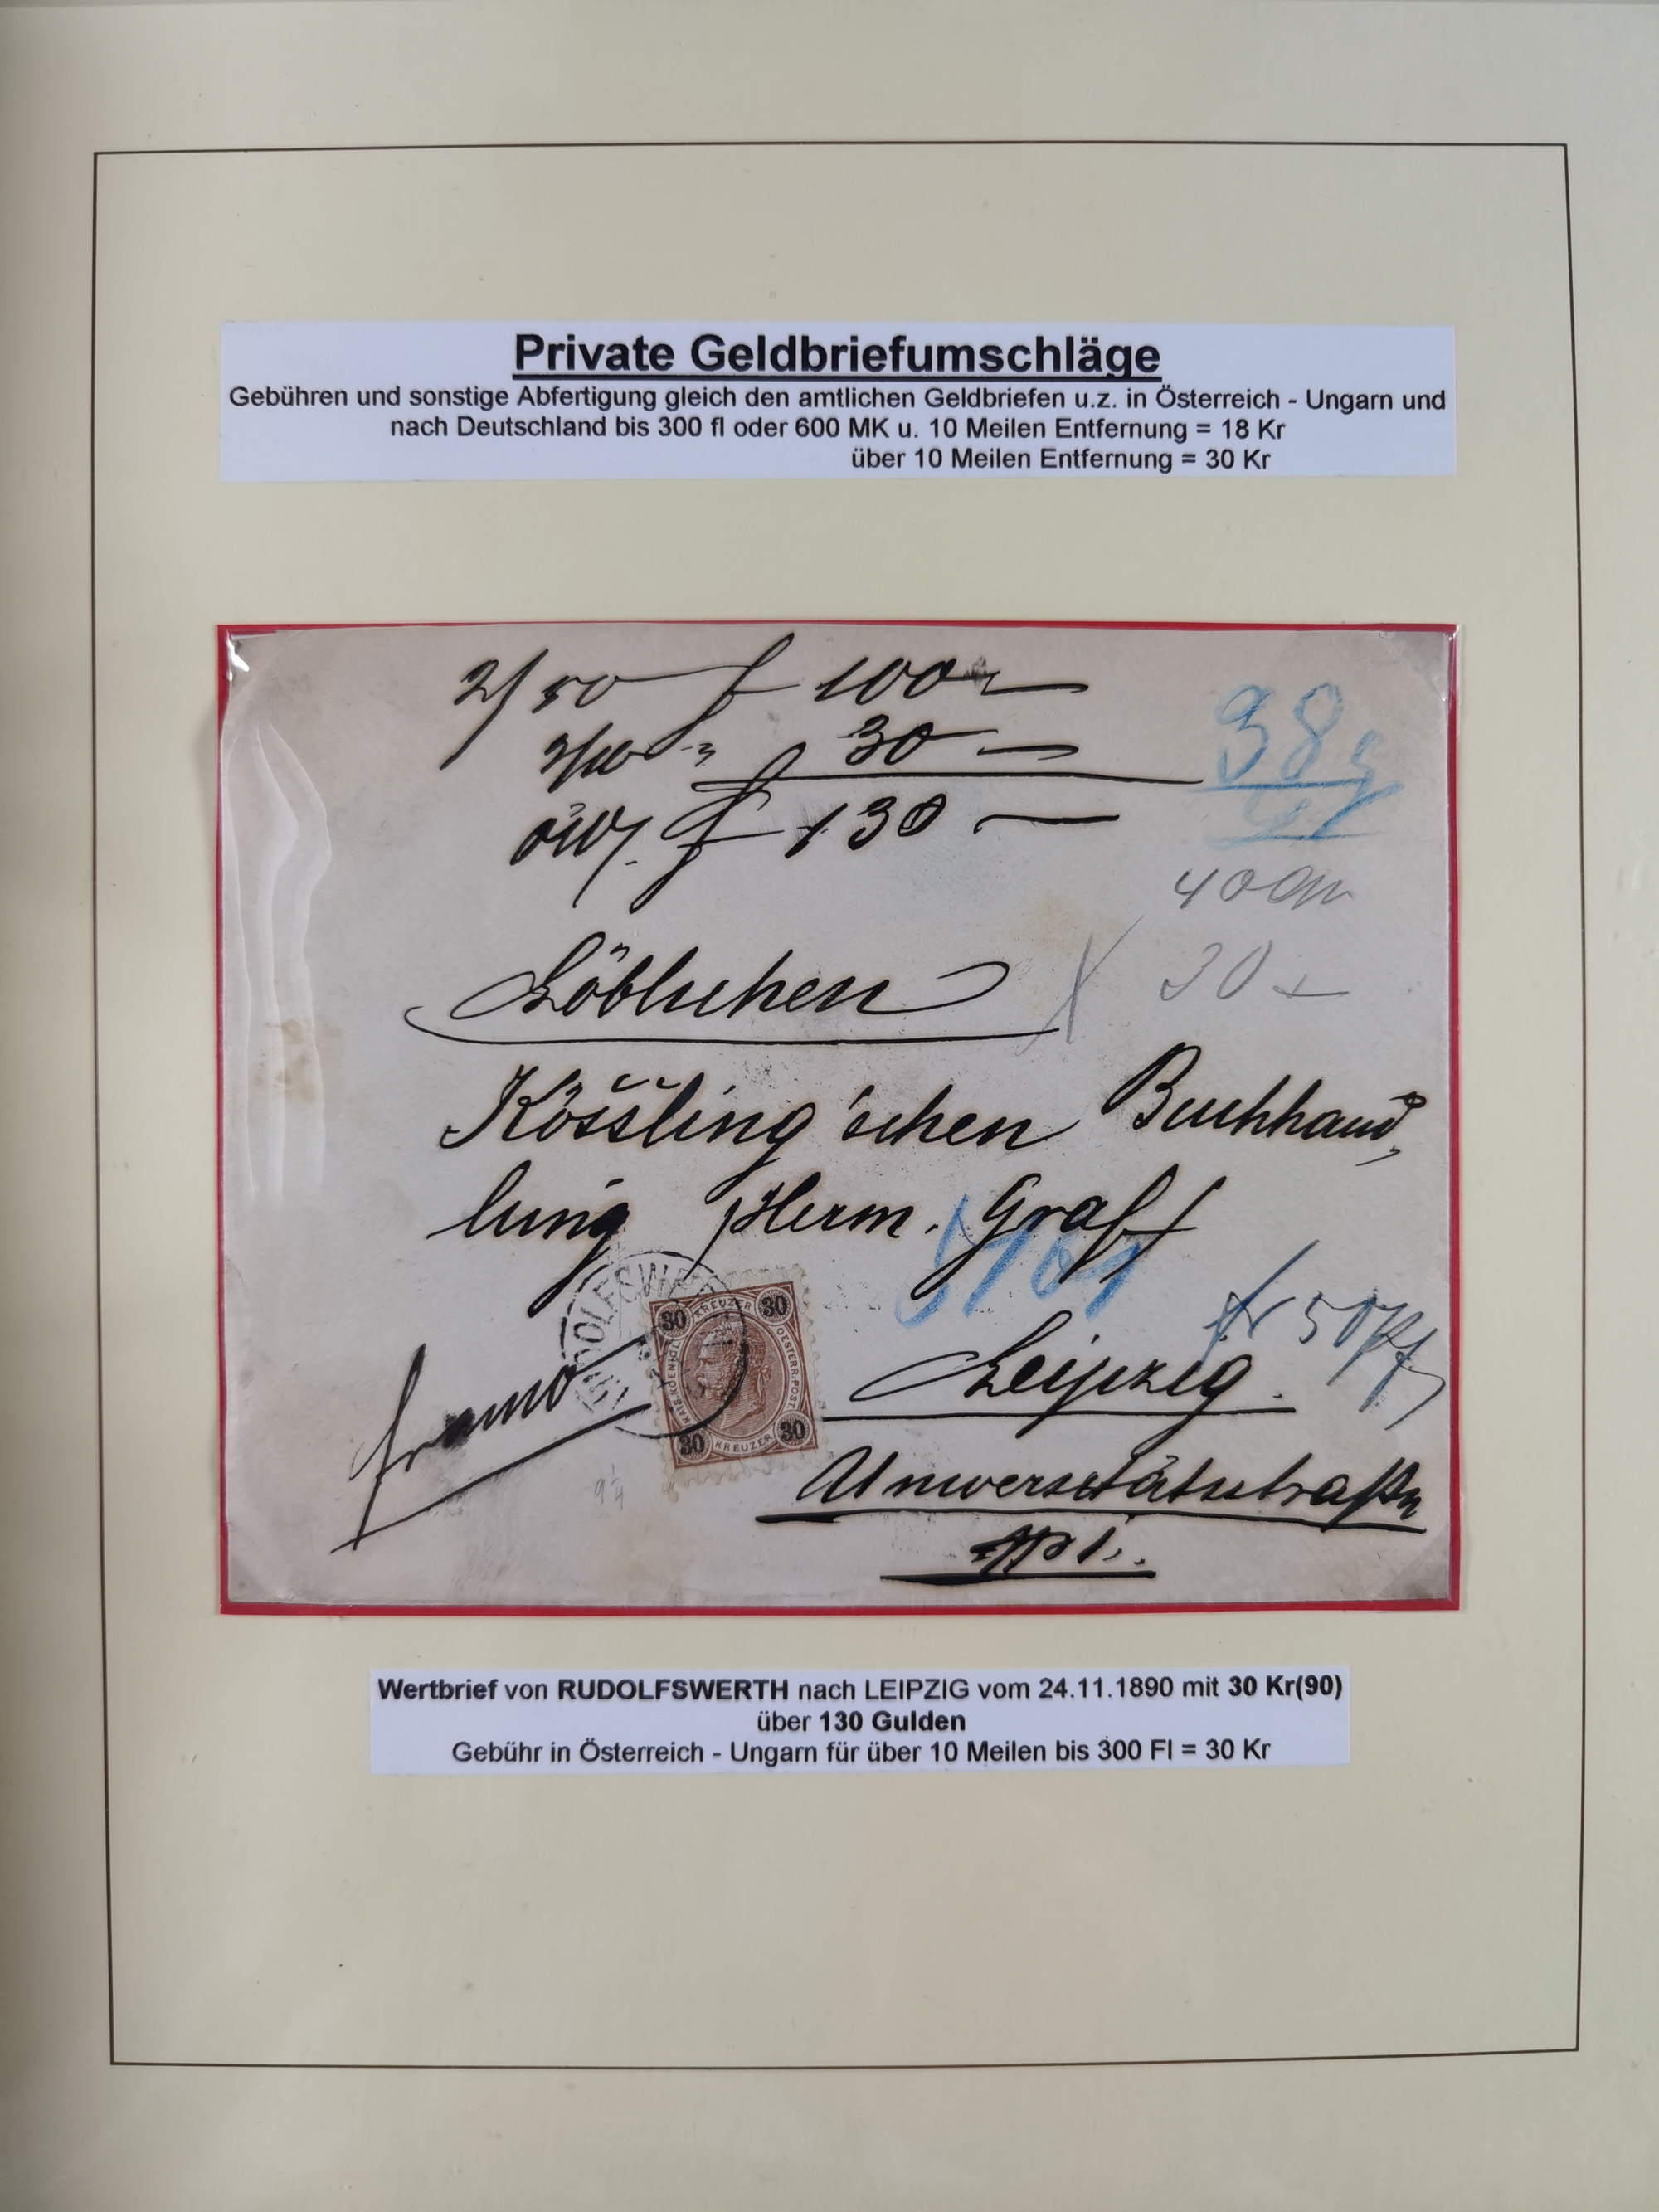 Private Geldbriefumschläge
Gebühren und sonstige Abfertigung gleich den amtlichen Geldbriefen u.z. in Österreich - Ungarn und
nach Deutschland bis 300 fl oder 600 MK u. 10 Meilen Entfernung = 18 Kr
über 10 Meilen Entfernung = 30 Kr
2/50 f 100 —
3/10 30 —
öW. f 130 —
38 g
40 gm
30
Löblichen
Kössling'schen Buchhand
lung Herm. Graf
fr 50 Pf
Leipzig.
franco
RUDOLFSWERTH
30 KREUZER 30
OESTERR. POST
KAIS. KOENIGL.
30 KREUZER 30
Universitätsstraße
9 1/4
Wertbrief von RUDOLFSWERTH nach LEIPZIG vom 24.11.1890 mit 30 Kr(90)
über 130 Gulden
Gebühr in Österreich - Ungarn für über 10 Meilen bis 300 Fl = 30 Kr